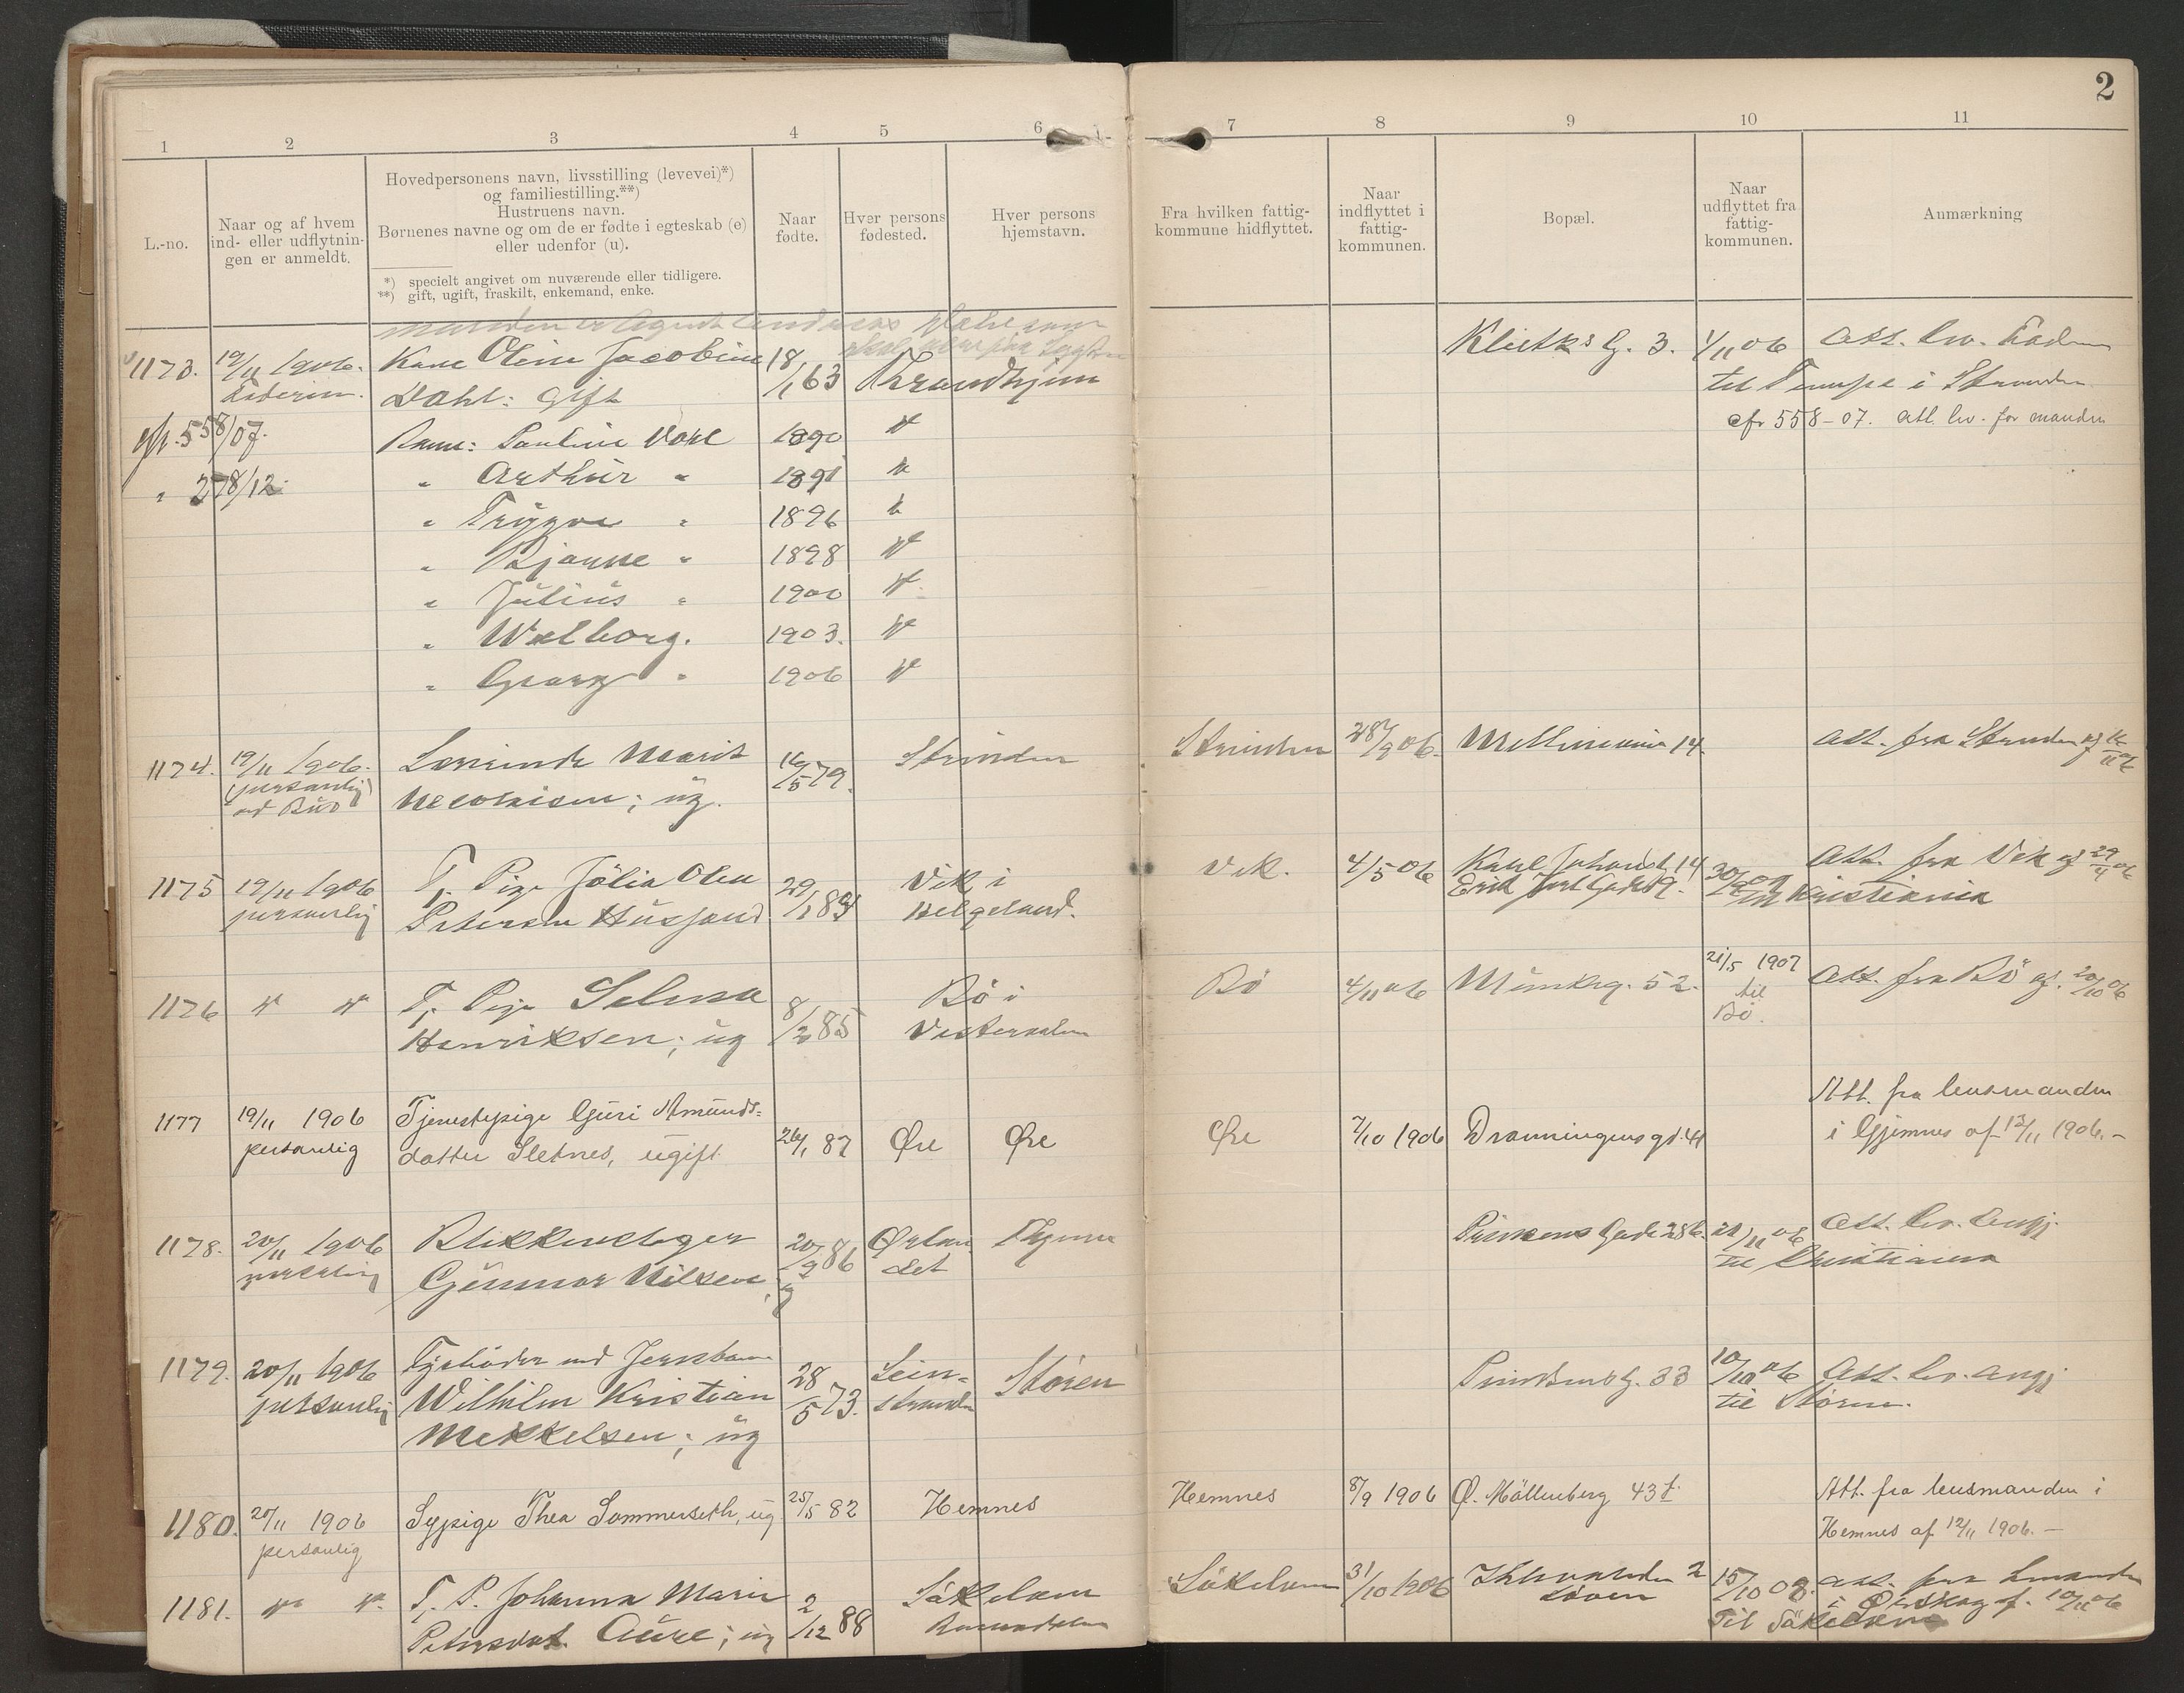 2
1 2 3 4 5 6 7 8 9 10 11
L.-no.
Naar og af hvem
ind- eller udflytnin-
gen er anmeldt.
Hovedpersonens navn, livsstilling (levevei)*)
og familiestilling.**)
Hustruens navn.
Børnenes navne og om de er fødte i egteskab (e)
eller udenfor (u).
*) specielt angivet om nuværende eller tidligere.
**) gift, ugift, fraskilt, enkemand, enke.
Naar
fødte.
Hver persons
fødested.
Hver persons
hjemstavn.
Fra hvilken fattig-
kommune hidflyttet.
Naar
indflyttet i
fattig-
kommunen.
Bopæl.
Naar
udflyttet fra
fattig-
kommunen.
Anmærkning
manden er Agent
1173. 19/11 1906. Kone Oline Jacobine 18/1 63 Trondhjem G. 3. 1/11 06 Att. lev.
Dahl: Gift til Tempe i Strinden
cfr. 558/07. Barn: Pauline Dahl 1890 cfr 558-07. Att. lev. for manden
" 278/12. " Arthur " 1891
" Trygve " 1896
" Bjarne " 1898
" Julius " 1900
" Walborg. 1903.
" Georg " 1906
1174. 19/11 1906. Marit 16/5 79. Strinden Strinden 28/9 06. 14 Att. fra Strinden af 16/11 06
personlig ved Bud ; ug.
1175 19/11 1906 Tj. Pige Jölia Olea 29/1 84 Vik i Vik. 4/5 06 14 30/9 07 Att. fra Vik af 29/4 06
personlig Petersen Husfand Helgeland. til Kristiania
1176 " " Tj. Pige Selma 8/2 85 Bö i Bö 4/11 06 Munkg. 52. 21/5 1907 Att. fra Bö af. 20/10 06
Henriksen; ug Vesteraalen til
Bö.
1177 19/11 1906 Tjenestepige Guri Amunds= 26/1 87 Øre Øre Øre 7/10 1906 Dronningens gd. 41 Att. fra lensmanden
personlig datter Sletnes, ugift i Gjemnes af 13/11 1906. -
1178. 20/11 1906 Blikkenslager 20/9 86 Ørlan Prinsens Gade 28b. 21/11 06 Att. lev.
personlig Gunnar Nilsen, ug det til Christiania
1179. 20/11 1906 Jernbane 28/5 73. Lein= Støren 33 10/10 06 Att. lev.
personlig Wilhelm Kristian stranden til Støren.
Mekkelsen; ug
1180. 20/11 1906 Sypige Thea Sommerseth, ug 25/5 82 Hemnes Hemnes 8/9 1906 Ø. Möllenberg 43 t. Att. fra lensmanden i
personlig Hemnes af 12/11 1906. -
1181. " " T. P. Johanna Marie 2/12 88 Sökelven Sökelven 31/10 1906 Ihlevolden 2 15/10 08. Att. fra Lmanden
Petersdat. Aure; ug Romsdalen Löven i Ørskog af. 10/11 06
Til Sökelven